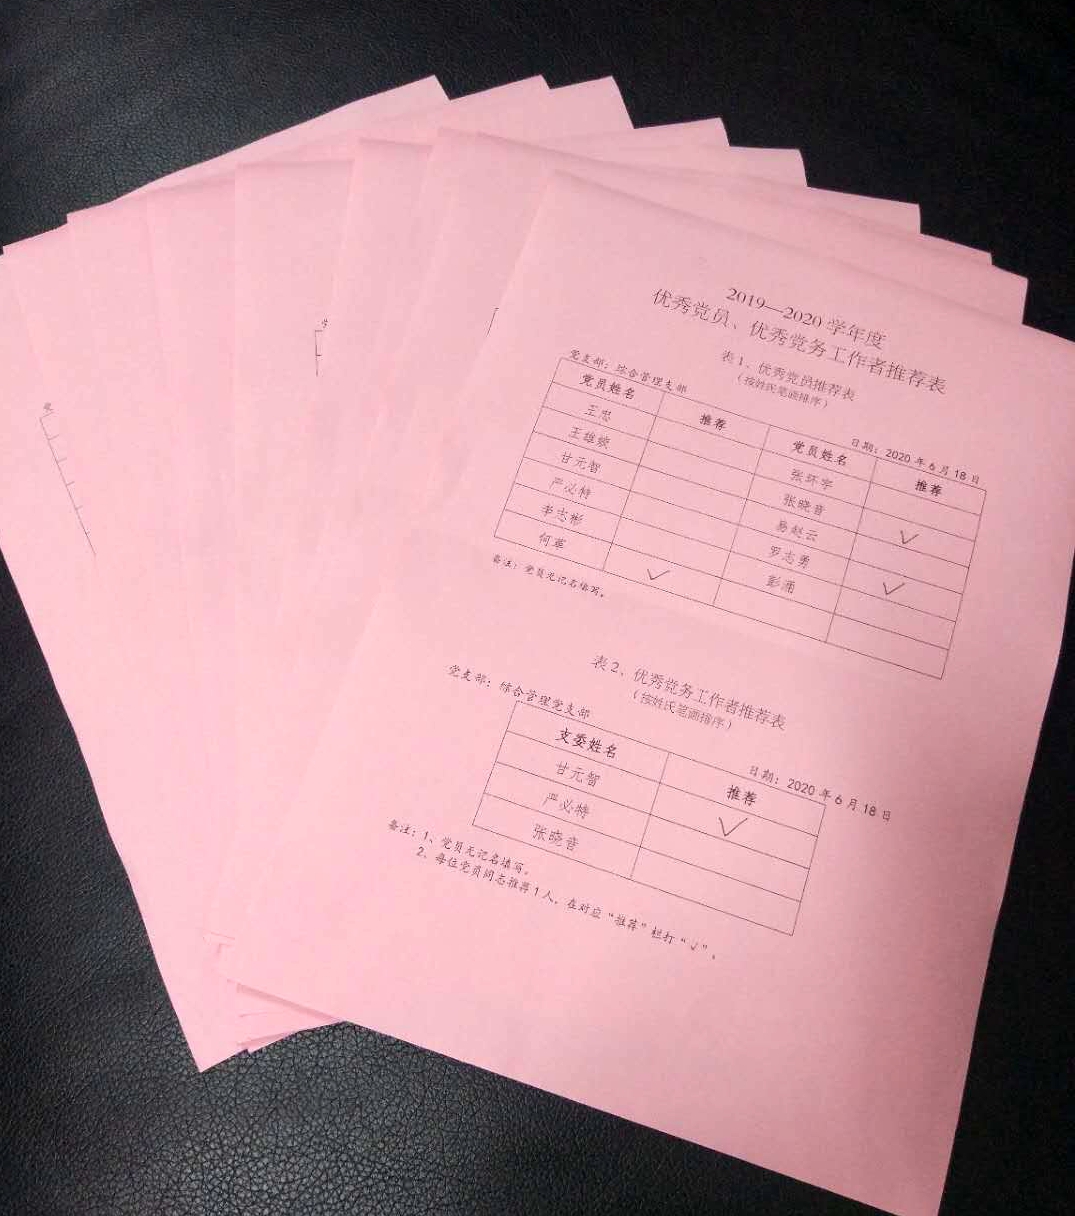 2019—2020 学年度
优秀党员、优秀党务工作者推荐表
表1、优秀党员推荐表
(按姓氏笔画排序)
党支部:综合管理支部 日期:2020 年 6 月 18 日
党员姓名 推荐 党员姓名 推荐
王忠 张环宇
王雄 张晓音 √
甘元智 易赵云
严必特 罗志勇 √
李志彬 彭涌
何革 √
备注:党员无记名填写。
表2、优秀党务工作者推荐表
(按姓氏笔画排序)
党支部:综合管理党支部 日期:2020 年 6 月 18 日
支委姓名 推荐
甘元智 √
严必特
张晓音
备注:1、党员无记名填写。
2、每位党员同志推荐 1 人,在对应“推荐”栏打“√”。